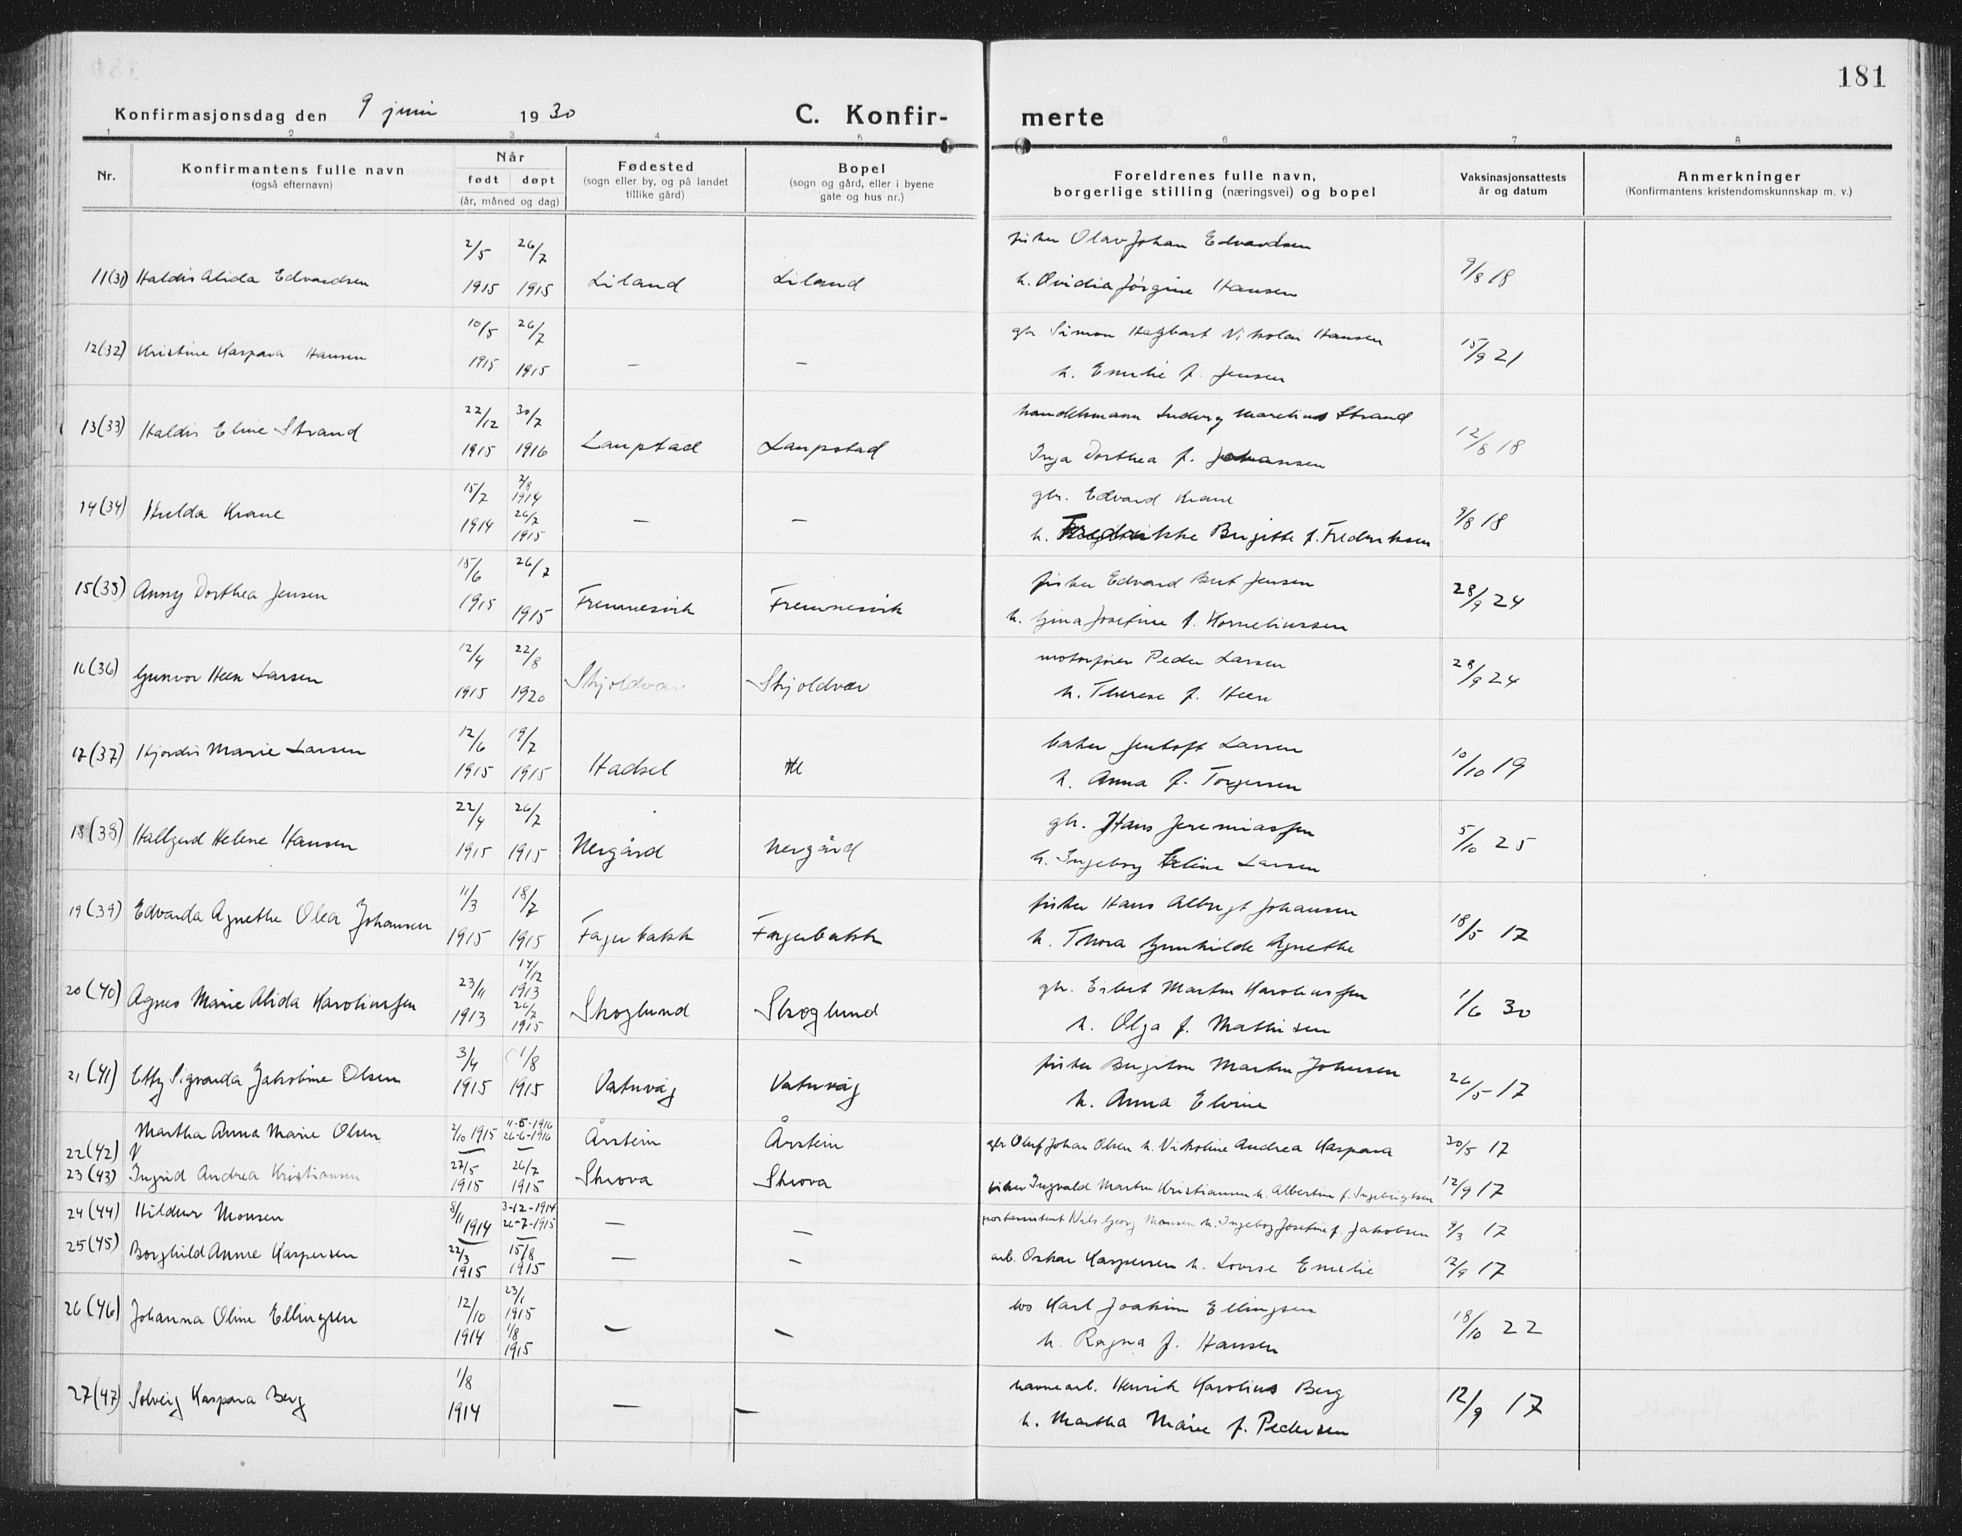 181
Konfirmasjonsdag den 9 juni 1930 C. Konfir- merte
1 2 3 4 5 6 7 8
Nr.
Konfirmantens fulle navn
(også efternavn)
Når
født døpt
(år, måned og dag)
Fødested
(sogn eller by, og på landet
tillike gård)
Bopel
(sogn og gård, eller i byene
gate og hus nr.)
Foreldrenes fulle navn,
borgerlige stilling (næringsvei) og bopel
Vaksinasjonsattests
år og datum
Anmerkninger
(Konfirmantens kristendomskunnskap m. v.)
2/5 26/7 fisker Olav Johan Edvardsen
11(31) Haldis Alida Edvardsen 1915 1915 Liland Liland h. Ovidia Jørgine Hansen 9/8 18
10/5 26/7 gbr Simon Hagbart Nikolai Hansen
12(32) Kristine Kaspara Hansen 1915 1915 — — h. Emelie f. Jensen 15/9 21
22/12 30/7 handelsmann Ludvig Marelius Strand
13(33) Haldis Eline Strand 1915 1916 Laupstad Laupstad Inga Dorthea f. Johansen 12/8 18
15/7 2/8 1914 gbr. Edvard Krane
14(34) Hulda Krane 1914 26/7 1915 — — h. Fredrikke Birgitte f. Fredriksen 9/8 18
15/6 26/7 fisker Edvard Bert Jensen
15(35) Anny Dorthea Jensen 1915 1915 Fremnesvik Fremnesvik h. Gina Josefine f. Korneliussen 28/9 24
12/4 22/8 motorfører Peder Larsen
16(36) Gunvor Heen Larsen 1915 1920 Skjoldvær Skjoldvær h. Therese f. Heen 28/9 24
12/6 19/7 baker Jentoft Larsen
17(37) Hjordis Marie Larsen 1915 1915 Hadsel h. Anna f. Torgersen 10/10 19
22/4 26/7 gbr. Hans Jeremiassen
18(38) Hallgerd Helene Hansen 1915 1915 Nergård Nergård h. Ingeborg Helene Larsen 5/10 25
11/3 18/7 fisker Hans Albrigt Johansen
19(39) Edvarda Agnethe Olea Johansen 1915 1915 Fagerbakk Fagerbakk h. Thora Gunhilde Agnethe 18/5 17
23/11 14/12 1913 gbr. Esbert Martin Karoliussen
20(40) Agnes Marie Alida Karoliussen 1913 26/7 1915 Skoglund Skoglund h. Olga f. Mathisen 1/6 30
3/4 1/8 fisker Birgiton Martin Johansen
21(41) Etty Sigvarda Jakobine Olsen 1915 1915 Vaterväg Vaterväg h. Anna Elvine 26/5 17
22(42) Martha Anna Marie Olsen 2/10 1915 11-5-1916 26-6-1916 Årstein Årstein gbr Oluf Johan Olsen h. Nikoline Andrea Kaspara 30/5 17
23(43) Ingrid Andrea Kristiansen 27/5 1915 26/7 1915 Skrova Skrova fisker Ingvald Martin Kristiansen h. Albertine f. Ingebrigtsen 12/9 17
24(44) Hildur Monsen 8/11 1914 3-12-1914 26-7-1915 — — postassistent Nils Georg Monsen h. Ingeborg Josefine f. Jakobsen 9/3 17
25(45) Borghild Annie Kaspersen 22/3 1915 15/8 1915 — — arb. Oskar Kaspersen h. Lovise Emelie 12/9 17
12/10 23/1 1915 Karl Joakim Ellingsen
26(46) Johanna Oline Ellingsen 1914 1/8 1915 — — h. Ragna f. Hansen 18/10 22
1/8 havnearb. Henrik Karolius Berg
27(47) Solveig Kaspara Berg 1914 — — h. Martha Marie f. Pedersen 12/9 17